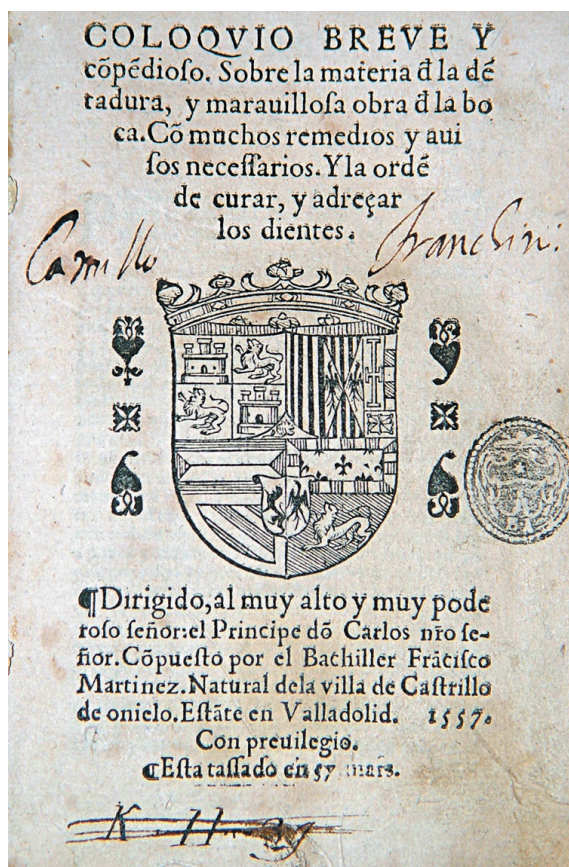 COLOQVIO BREVE Y
cõpẽdioſo. Sobre la materia đ la dẽ
tadura, y marauilloſa obra đ la bo
ca. Cõ muchos remedios y aui
ſos neceſſarios. Y la ordẽ
de curar, y adreçar
los dientes.
Camillo franchini
¶Dirigido, al muy alto y muy pode
roſo ſeñor: el Principe dõ Carlos nr̃o ſe-
ñor. Cõpueſto por el Bachiller Frãciſco
Martinez. Natural dela villa de Caſtrillo
de onielo. Eſtãte en Valladolid. 1557.
Con preuilegio.
¶Eſta taſſado en 57 mars.